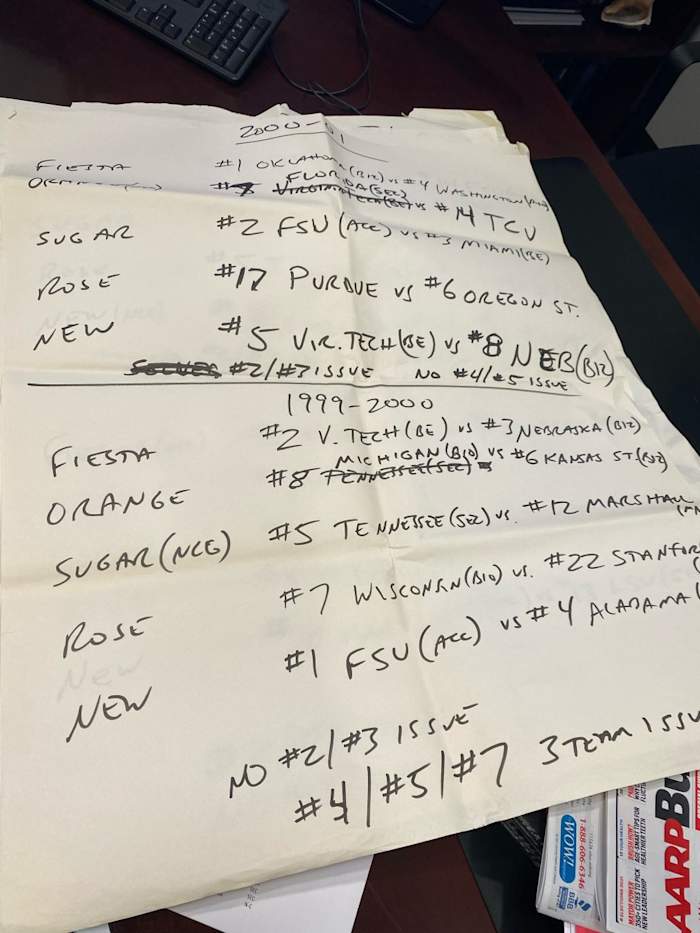 2000-01
FIESTA #1 OKLAHOMA(B12) vs #4 WASHINGTON(P10)
FLORIDA(SEC)
#7 VIRGINIA TECH(BE) vs #14 TCU
SUGAR #2 FSU (ACC) vs #3 MIAMI(BE)
ROSE #17 PURDUE vs #6 OREGON ST.
NEW #5 VIR. TECH(BE) vs #8 NEB(B12)
SOLVES #2/#3 ISSUE NO #4/#5 ISSUE
1999-2000
FIESTA #2 V. TECH(BE) vs #3 NEBRASKA(B12)
MICHIGAN(B10)
ORANGE #8 TENNESSEE(SEC) vs #6 KANSAS ST(B12)
SUGAR(NCG) #5 TENNESSEE(SEC) vs. #12 MARSHALL
ROSE #7 WISCONSIN(B10) vs. #22 STANFOR
NEW #1 FSU(ACC) vs #4 ALABAMA(
NO #2/#3 ISSUE
#4/#5/#7 3 TEAM ISSU
1-888-606-6346
WOW!
BBB
AARPBu
BRUSH HON?
AGE-SMART TIPS FOR
HEALTHIER TEETH
MAYOR POWER
350+ CITIES TO PICK
NEW LEADERSHIP